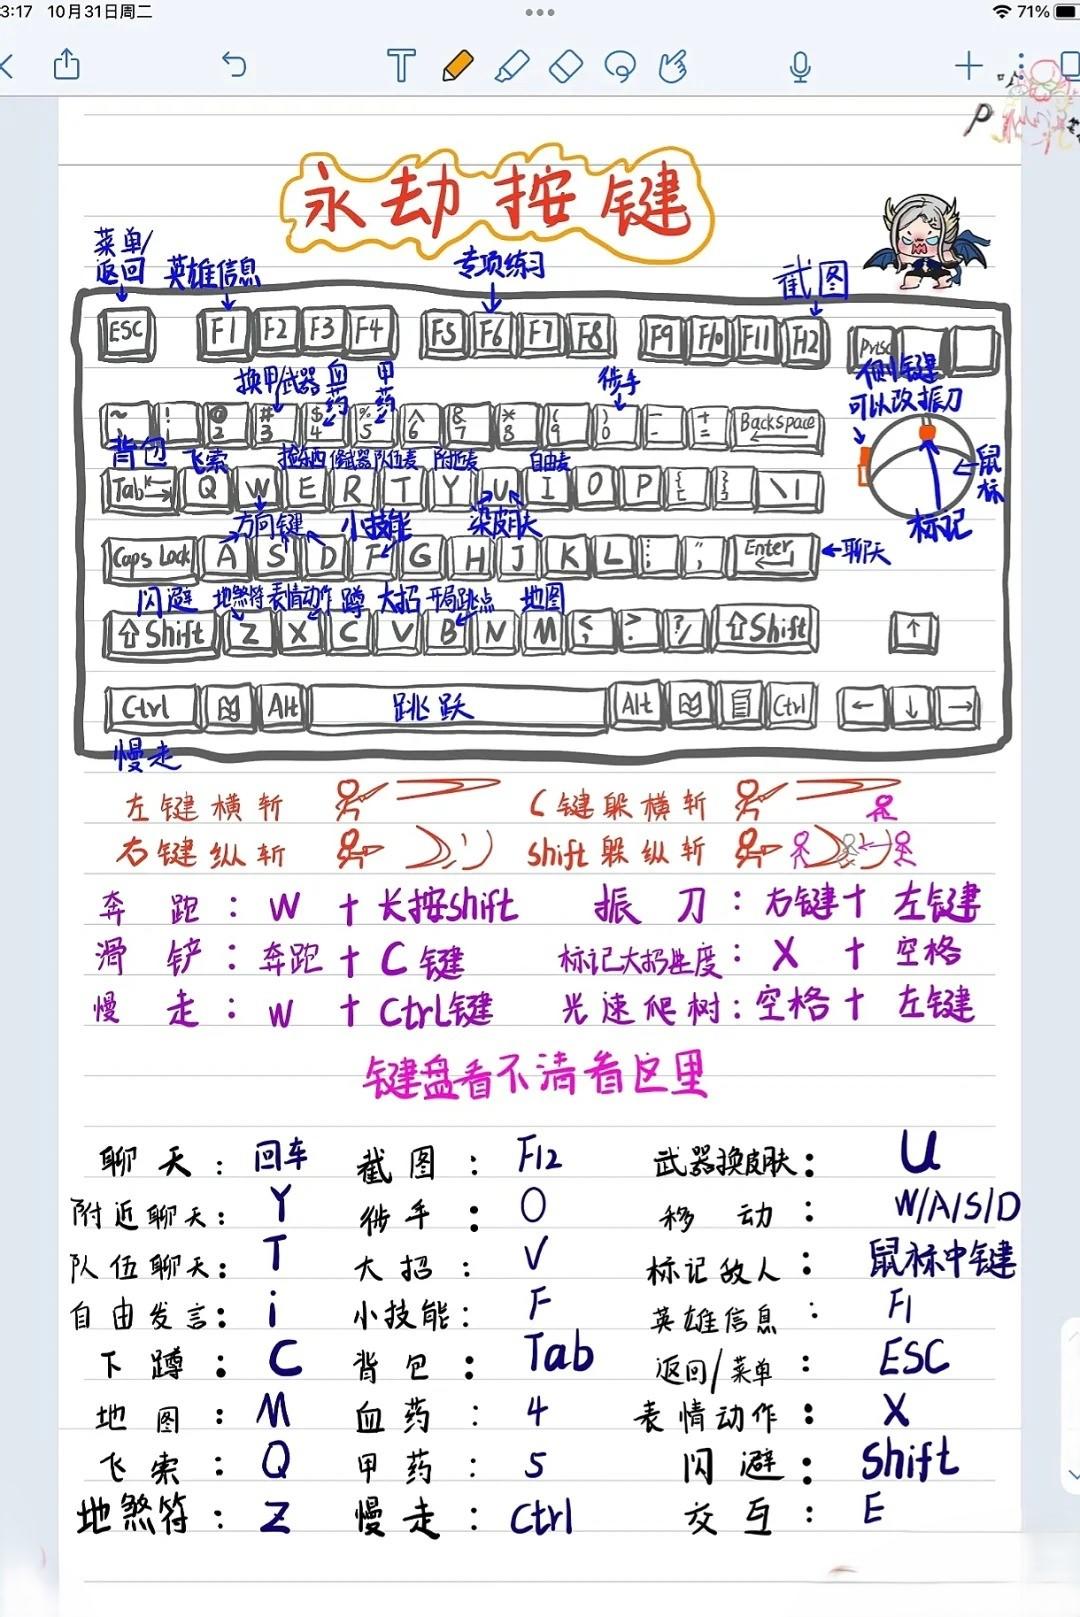 3:17 10月31日周二
71%
永劫按键
菜单/返回 英雄信息 专项练习 截图
ESC F1 F2 F3 F4 F5 F6 F7 F8 F9 F10 F11 F12 Prtsc
换甲/武器 血药 甲药 徙手 侧键可以改振刀
~ ! @ 2 # 3 $ 4 % 5 ^ 6 & 7 * 8 ( 9 ) 0 - - + = Backspace
背包 飞索 修武器 队伍麦 附近麦 自由麦
Tab Q W E R T Y U I O P { [ } ] \ |
鼠标
方向键 小技能 染皮肤 标记
Caps Lock A S D F G H J K L : ; " , Enter 聊天
闪避 地煞符 表情动作 蹲 大招 开局跳点 地图
Shift Z X C V B N M < > ? / Shift ↑
Ctrl Alt 跳跃 Alt Ctrl ← ↓ →
慢走
左键横斩 C键躲横斩
右键纵斩 shift躲纵斩
奔跑：W + 长按shift 振刀：右键+左键
滑铲：奔跑+C键 标记大招进度：X + 空格
慢走：W + Ctrl键 光速爬树：空格+左键
键盘看不清看这里
聊天：回车 截图：F12 武器换皮肤：U
附近聊天：Y 徙手：O 移动：W/A/S/D
队伍聊天：T 大招：V 标记敌人：鼠标中键
自由发言：i 小技能：F 英雄信息：F1
下蹲：C 背包：Tab 返回/菜单：ESC
地图：M 血药：4 表情动作：X
飞索：Q 甲药：5 闪避：Shift
地煞符：Z 慢走：Ctrl 交互：E